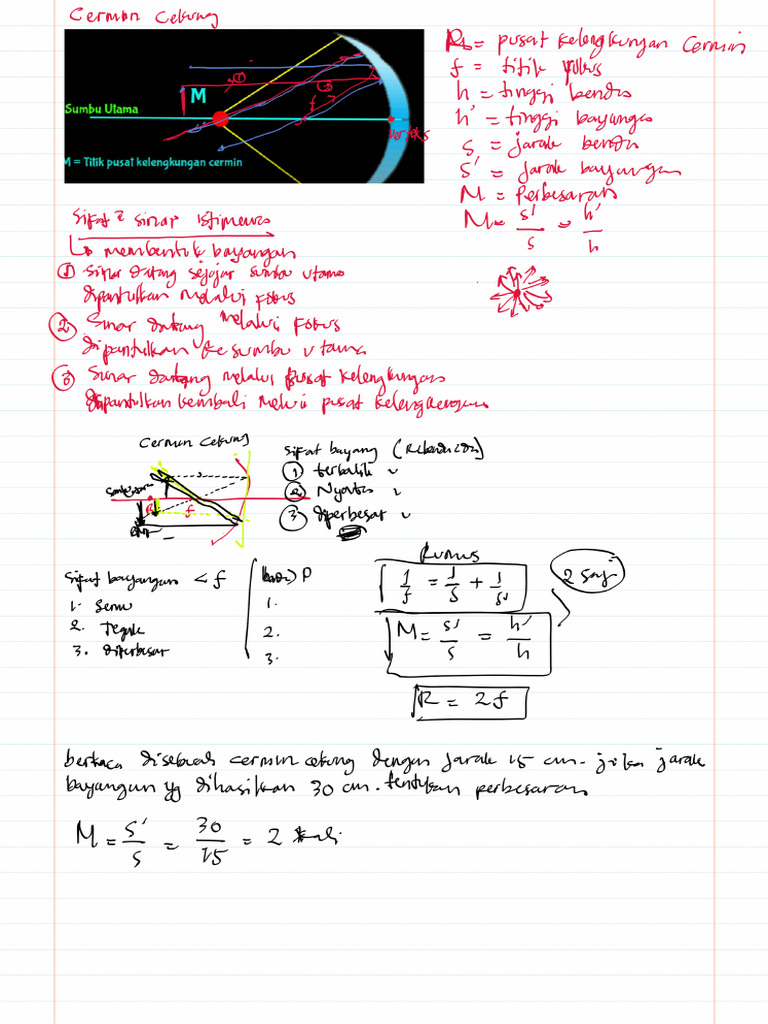 Cermin Cekung
M
Sumbu Utama
f
verteks
M = Titik pusat kelengkungan cermin
R = pusat kelengkungan cermin
f = titik fokus
h = tinggi benda
h' = tinggi bayangan
s = jarak benda
s' = jarak bayangan
M = Perbesaran
M = s'/s = h'/h
Sifat² sinar istimewa
↳ membentuk bayangan
① Sinar datang sejajar sumbu utama
dipantulkan melalui fokus
② Sinar datang melalui fokus
dipantulkan ke sumbu utama
③ Sinar datang melalui pusat kelengkungan
dipantulkan kembali melui pusat kelengkungan
Cermin Cekung
R
f
Sifat bayang
① terbalik
② Nyata
③ diperbesar
Sifat bayangan < f
1. Semu
2. Tegak
3. diperbesar
P
1.
2.
3.
Rumus
1/f = 1/s + 1/s'
M = s'/s = h'/h
R = 2f
2 saj
berkaca disebuah cermin cekung dengan jarak 15 cm. jika jarak
bayangan yg dihasilkan 30 cm. tentukan perbesaran
M = s'/s = 30/15 = 2 kali